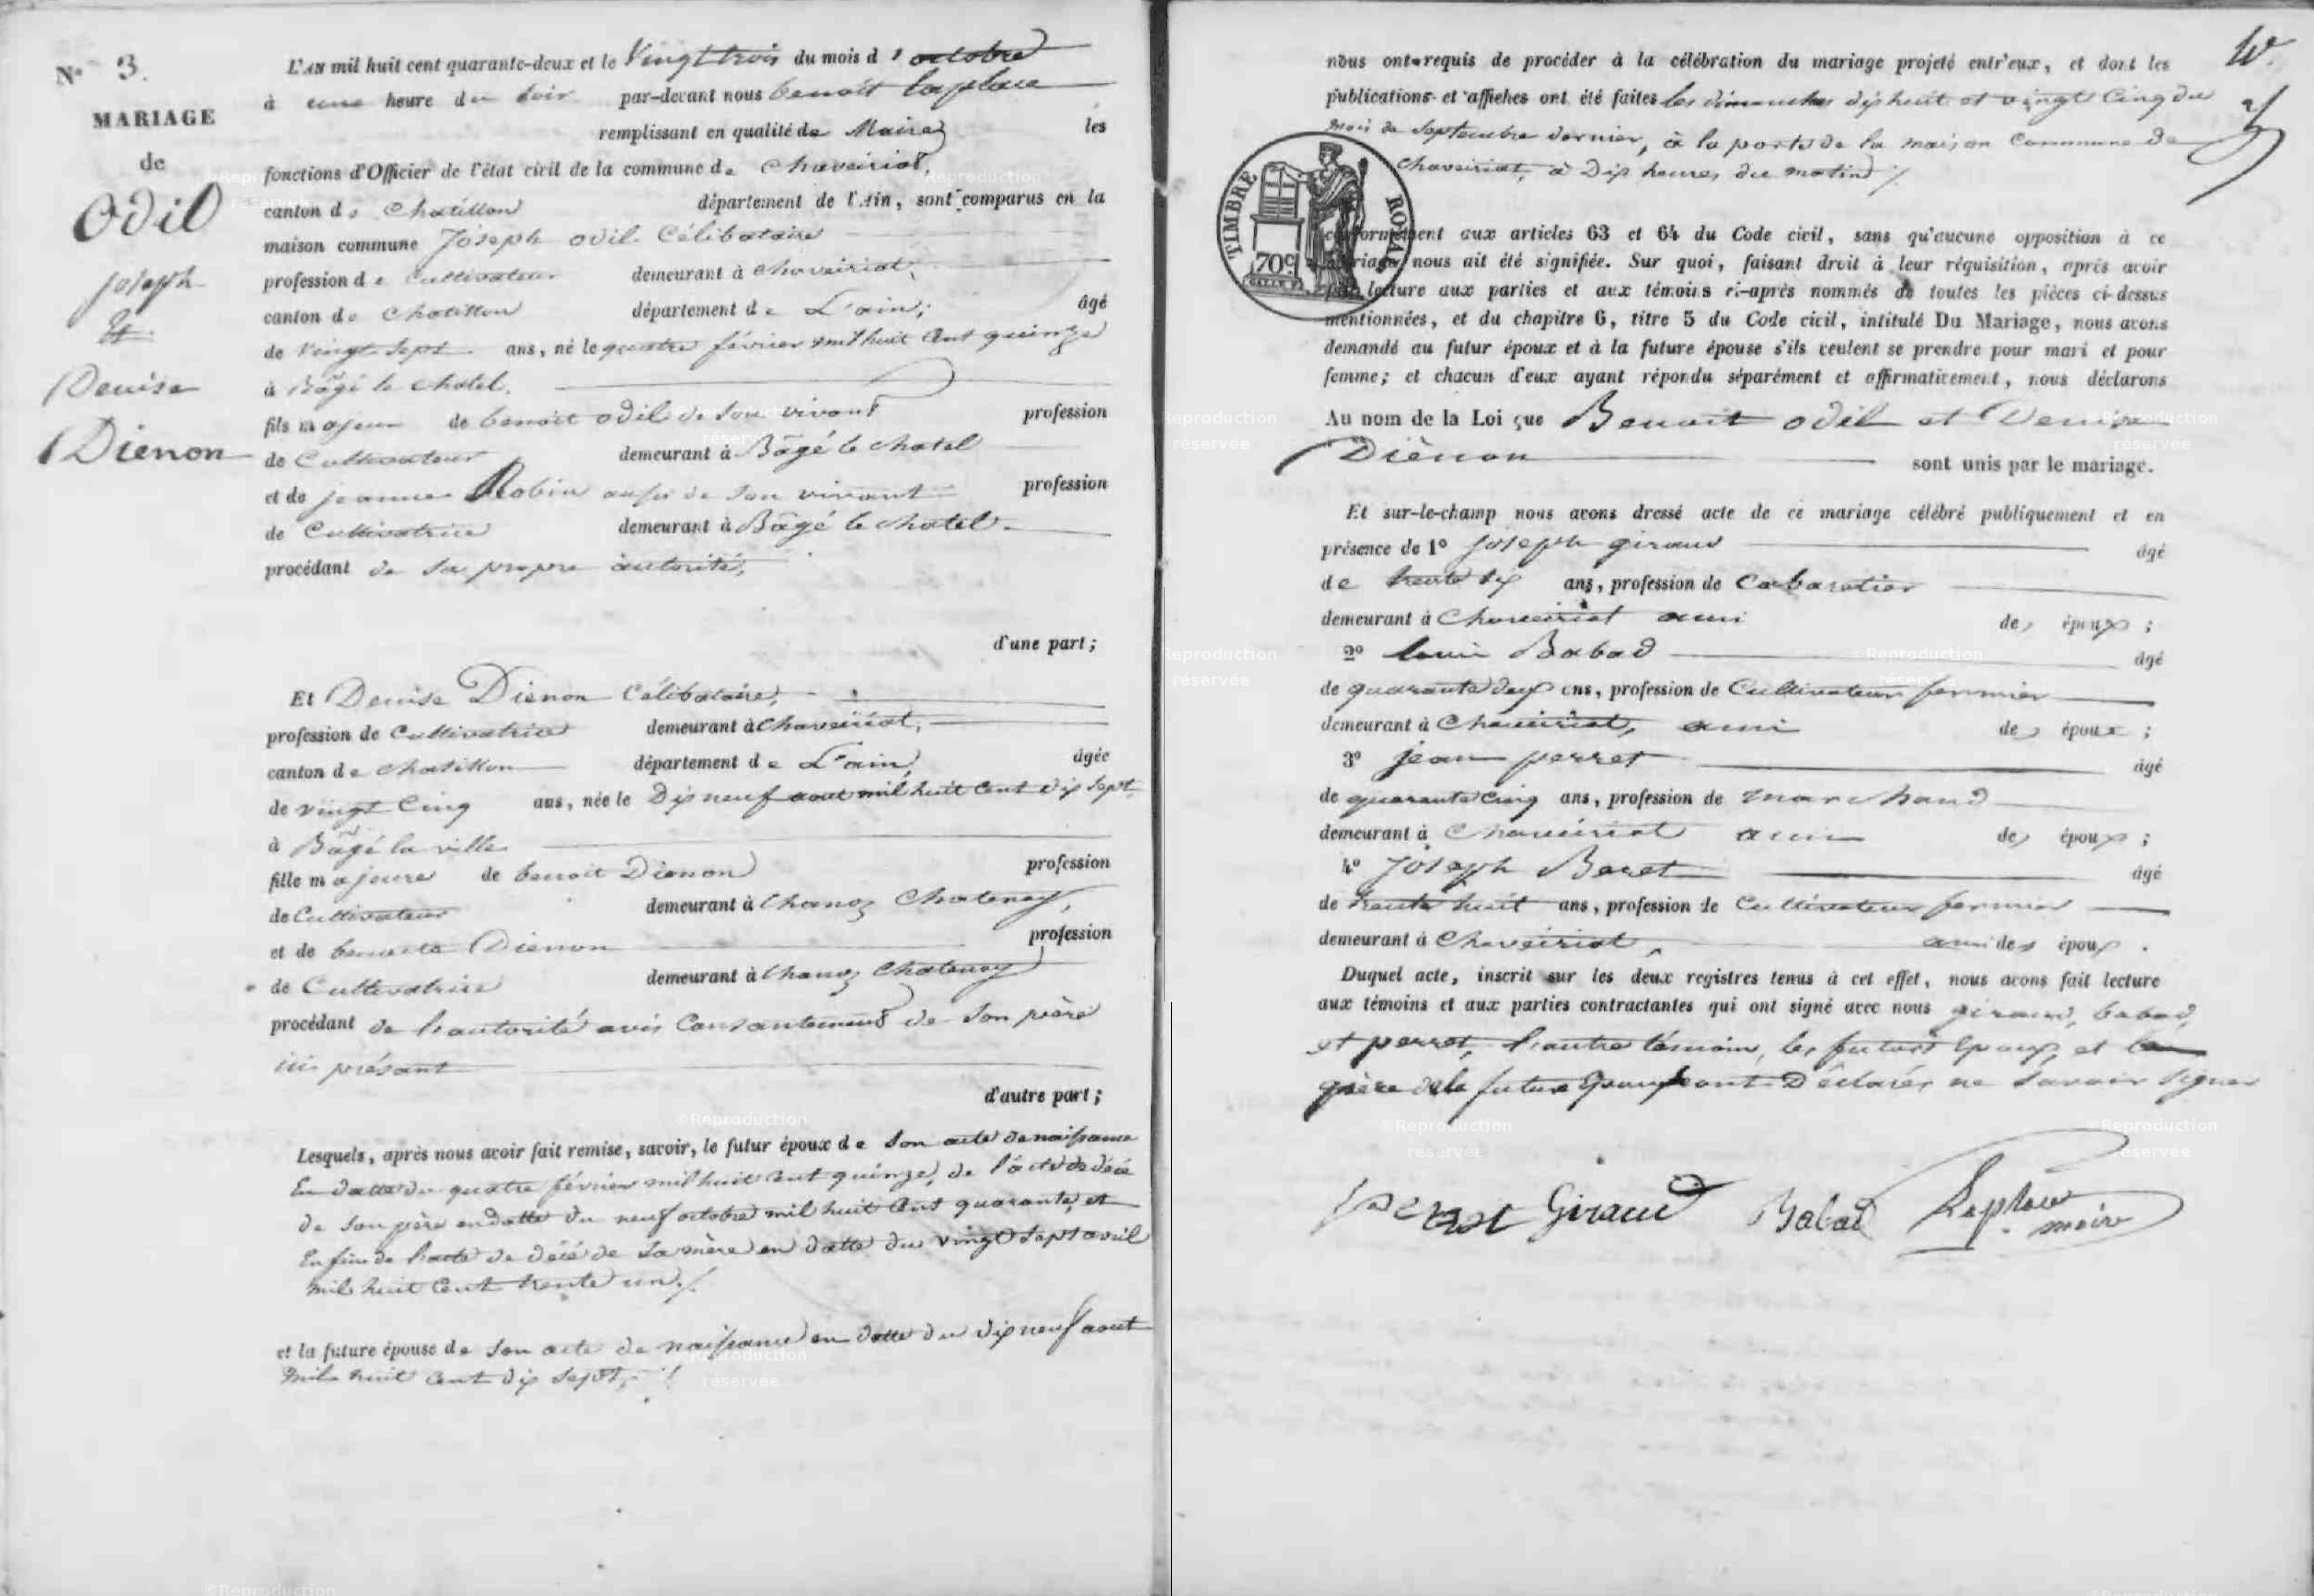 N° 3.
MARIAGE
de
Odil
joseph
Et
Denise
Dienon
L'AN mil huit cent quarante-deux et le Vingt trois du mois d'octobre
à une heure du soir par-devant nous benoit laplace
remplissant en qualité de Maire les
fonctions d'Officier de l'état civil de la commune de chaveiriat
canton de chatillon département de l'Ain, sont comparus en la
maison commune Joseph odil Célibataire
profession de cultivateur demeurant à chaveiriat,
canton de chatillon département de L'ain, âgé
de vingt sept ans, né le quatre février mil huit Cent quinze
à Bâgé le chatel.
fils majeur de benoit odil de son vivant profession
de Cultivateur demeurant à Bâgé le chatel
et de jeanne Robin aussi de son vivant profession
de Cultivatrice demeurant à Bâgé le chatel.
procédant de sa propre autorité,
d'une part;
Et Denise Dienon Célibataire,
profession de Cultivatrice demeurant à chaveiriat,
canton de chatillon département de L'ain, âgée
de vingt Cinq ans, née le Dix neuf aout mil huit Cent dix sept
à Bâgé la ville
fille majeure de benoit Dienon profession
de Cultivateur demeurant à Chanoz Chatenay,
et de benoite Dienon profession
de Cultivatrice demeurant à Chanoz Chatenay
procédant de l'autorité avis Consantement de son père
ici présant
d'autre part;
Lesquels, après nous avoir fait remise, savoir, le futur époux de son acte de naissance
En datte du quatre février mil huit Cent quinze, de l'acte de décé
de son père en datte du neuf octobre mil huit Cent quarante, et
Enfin de l'acte de décé de sa mère en datte du vingt sept avril
mil huit Cent trente un./.
et la future épouse de son acte de naissance en datte du dix neuf aout
mil huit Cent dix sept,
nous ont requis de procéder à la célébration du mariage projeté entr'eux, et dont les
publications et affiches ont été faites les dimanches dix huit et vingt Cinq du
mois de Septembre dernier, à la porte de la maison Commune de
chaveiriat, à Dix heures du matin /.
TIMBRE ROYAL
70c
conformément aux articles 63 et 64 du Code civil, sans qu'aucune opposition à ce
mariage nous ait été signifiée. Sur quoi, faisant droit à leur réquisition, après avoir
fait lecture aux parties et aux témoins ci-après nommés de toutes les pièces ci-dessus
mentionnées, et du chapitre 6, titre 5 du Code civil, intitulé Du Mariage, nous avons
demandé au futur époux et à la future épouse s'ils veulent se prendre pour mari et pour
femme; et chacun d'eux ayant répondu séparément et affirmativement, nous déclarons
Au nom de la Loi que Benoit odil et Denise
Diènon sont unis par le mariage.
Et sur-le-champ nous avons dressé acte de ce mariage célébré publiquement et en
présence de 1° joseph giraud âgé
de trente six ans, profession de Cabaretier
demeurant à Chaveiriat ami des époux;
2° louis Babad âgé
de quarante deux ans, profession de Cultivateur fermier
demeurant à Chaveiriat, ami des époux;
3° jean perret âgé
de quarante Cinq ans, profession de marchand
demeurant à Chaveiriat ami des époux;
4° Joseph Beret âgé
de trente huit ans, profession de Cultivateur fermier
demeurant à Chaveiriat, ami des époux.
Duquel acte, inscrit sur les deux registres tenus à cet effet, nous avons fait lecture
aux témoins et aux parties contractantes qui ont signé avec nous giraud, babad,
et perret, l'autre témoin, les futurs Epoux, et le
père de la future Epouse ont Déclarés ne savoir signer
perret Giraud Babad Laplace
maire
©Reproduction
réservée